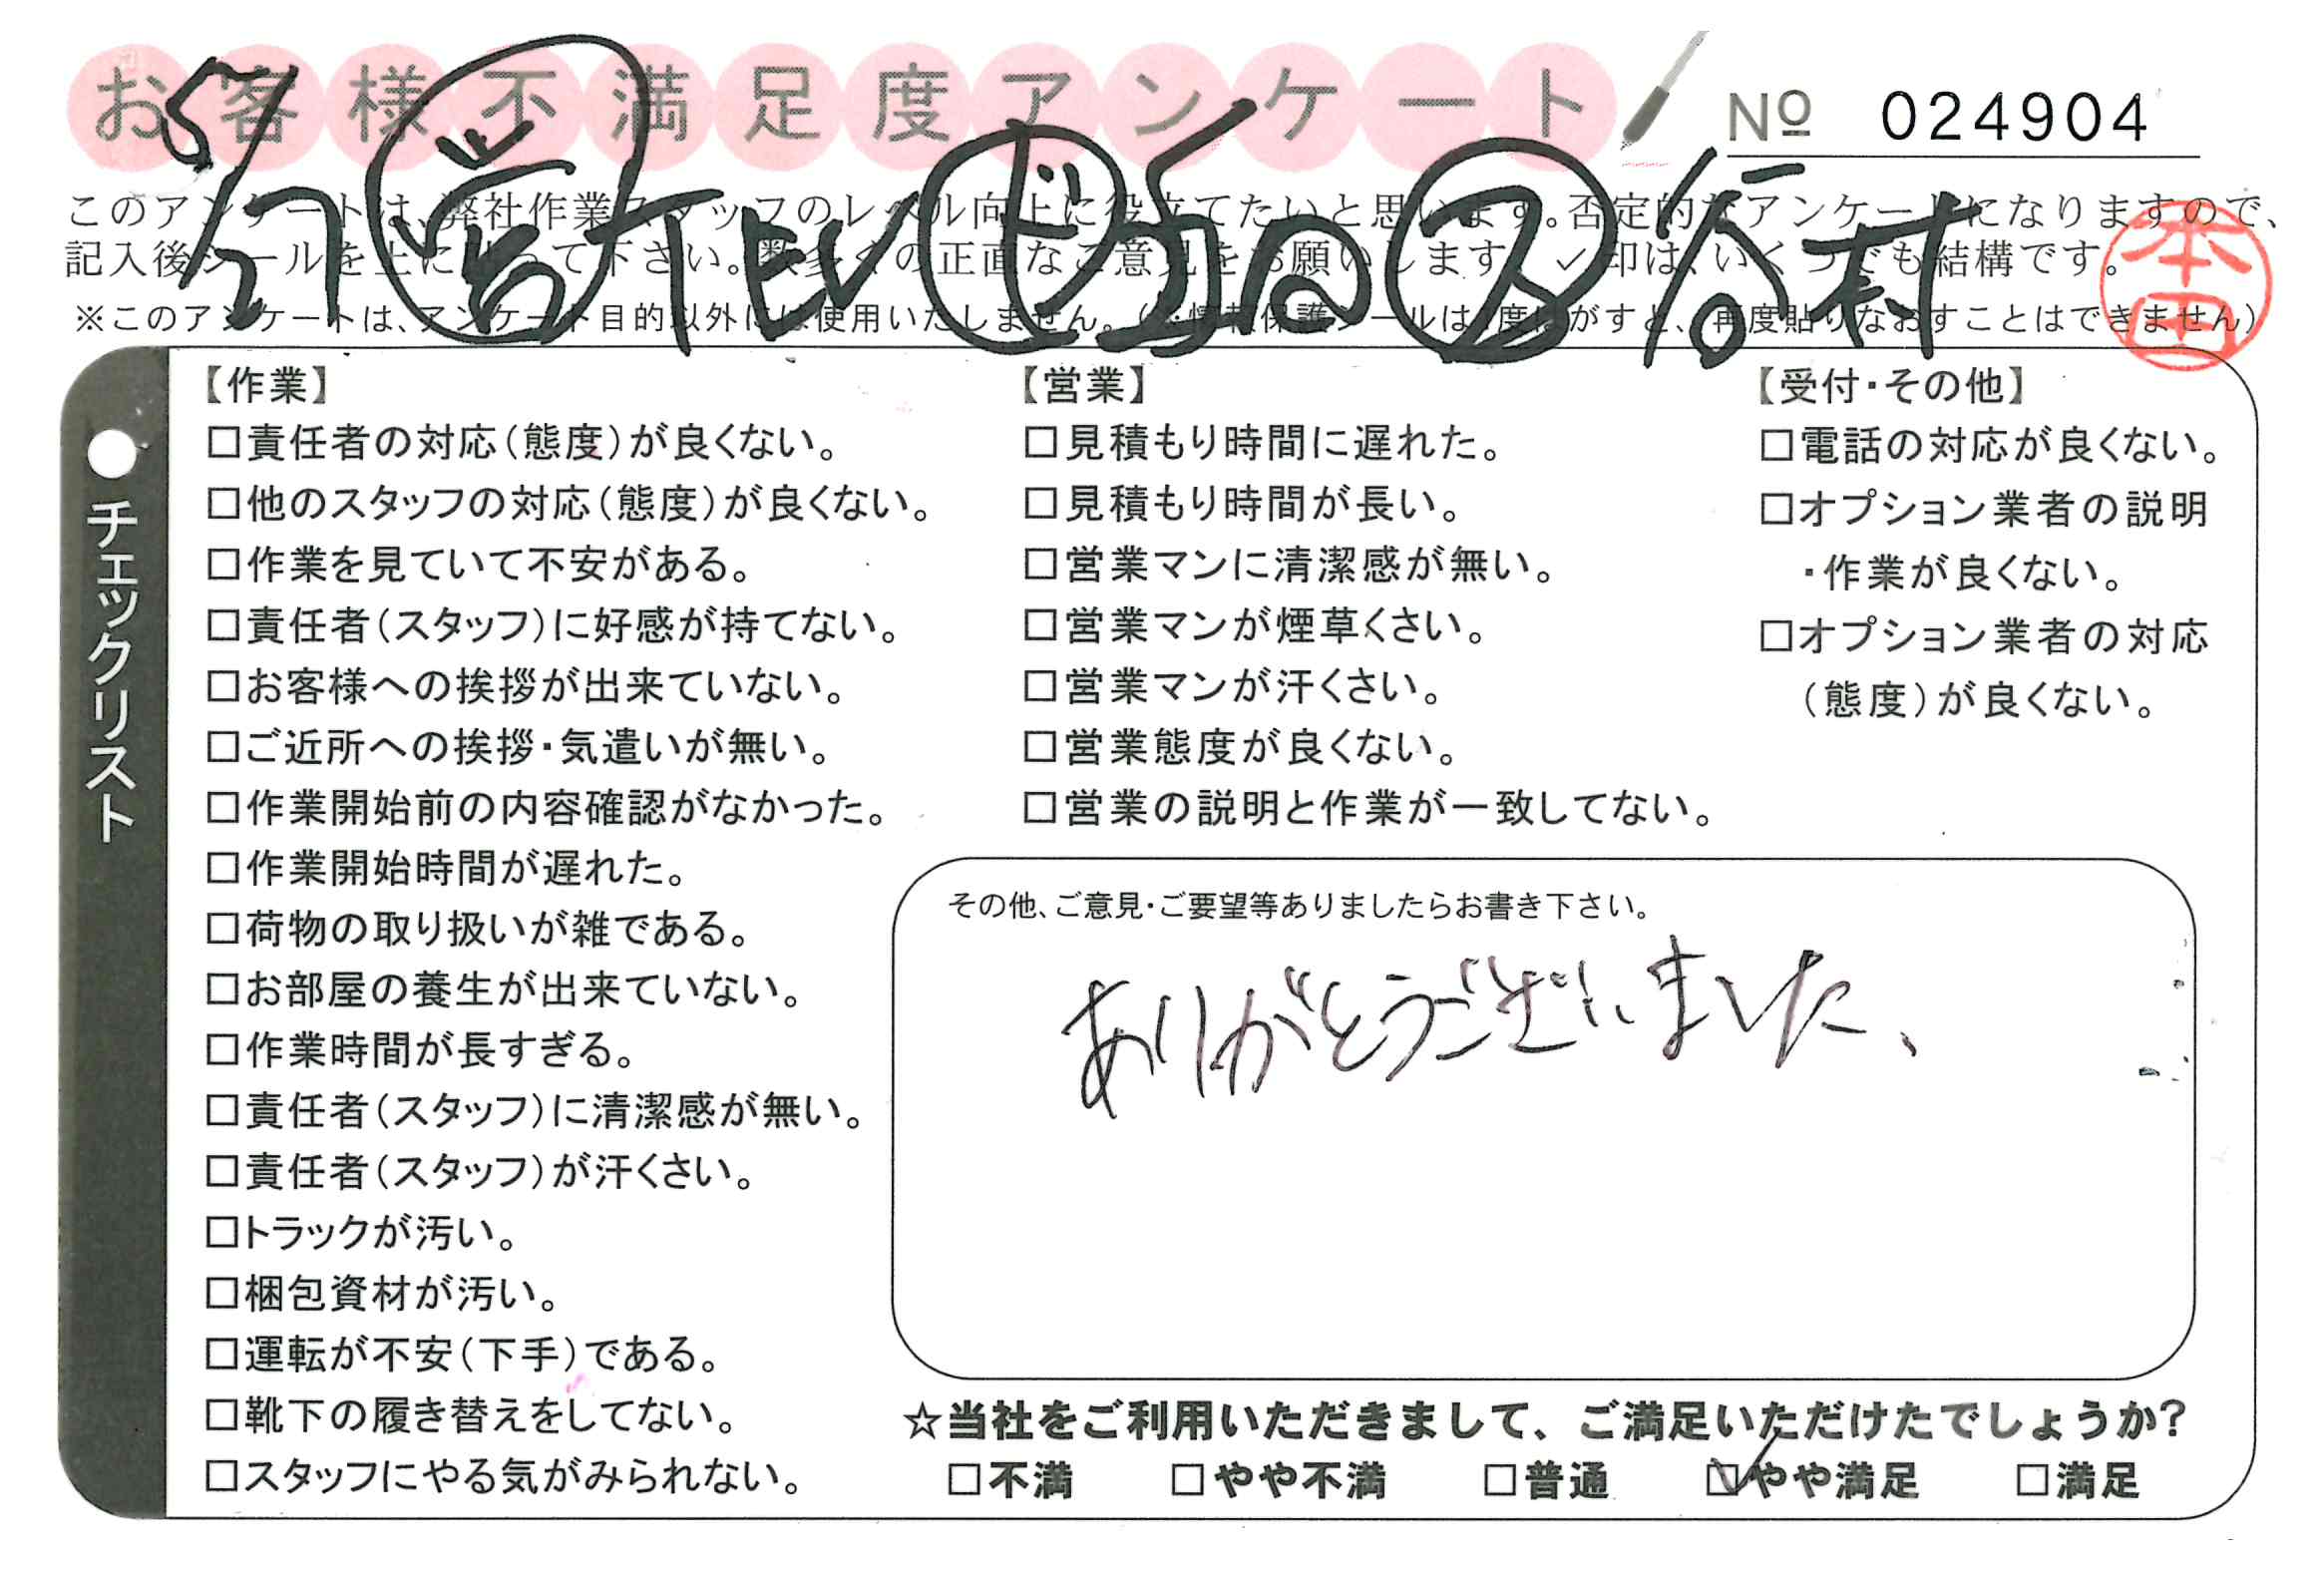 お客様不満足度アンケート
№ 024904
5/27 営 TEL ド ス 谷村
本田
このアンケートは、弊社作業スタッフのレベル向上に役立てたいと思います。否定的なアンケートになりますので、
記入後シールを上に貼って下さい。数多くの正直なご意見をお願いします。✓印は、いくつでも結構です。
※このアンケートは、アンケート目的以外には使用いたしません。(※情報保護シールは1度はがすと、再度貼りなおすことはできません)
チェックリスト
【作業】
□責任者の対応(態度)が良くない。
□他のスタッフの対応(態度)が良くない。
□作業を見ていて不安がある。
□責任者(スタッフ)に好感が持てない。
□お客様への挨拶が出来ていない。
□ご近所への挨拶・気遣いが無い。
□作業開始前の内容確認がなかった。
□作業開始時間が遅れた。
□荷物の取り扱いが雑である。
□お部屋の養生が出来ていない。
□作業時間が長すぎる。
□責任者(スタッフ)に清潔感が無い。
□責任者(スタッフ)が汗くさい。
□トラックが汚い。
□梱包資材が汚い。
□運転が不安(下手)である。
□靴下の履き替えをしてない。
□スタッフにやる気がみられない。
【営業】
□見積もり時間に遅れた。
□見積もり時間が長い。
□営業マンに清潔感が無い。
□営業マンが煙草くさい。
□営業マンが汗くさい。
□営業態度が良くない。
□営業の説明と作業が一致してない。
【受付・その他】
□電話の対応が良くない。
□オプション業者の説明
・作業が良くない。
□オプション業者の対応
(態度)が良くない。
その他、ご意見・ご要望等ありましたらお書き下さい。
ありがとうございました、
☆当社をご利用いただきまして、ご満足いただけたでしょうか?
□不満 □やや不満 □普通 ☑やや満足 □満足